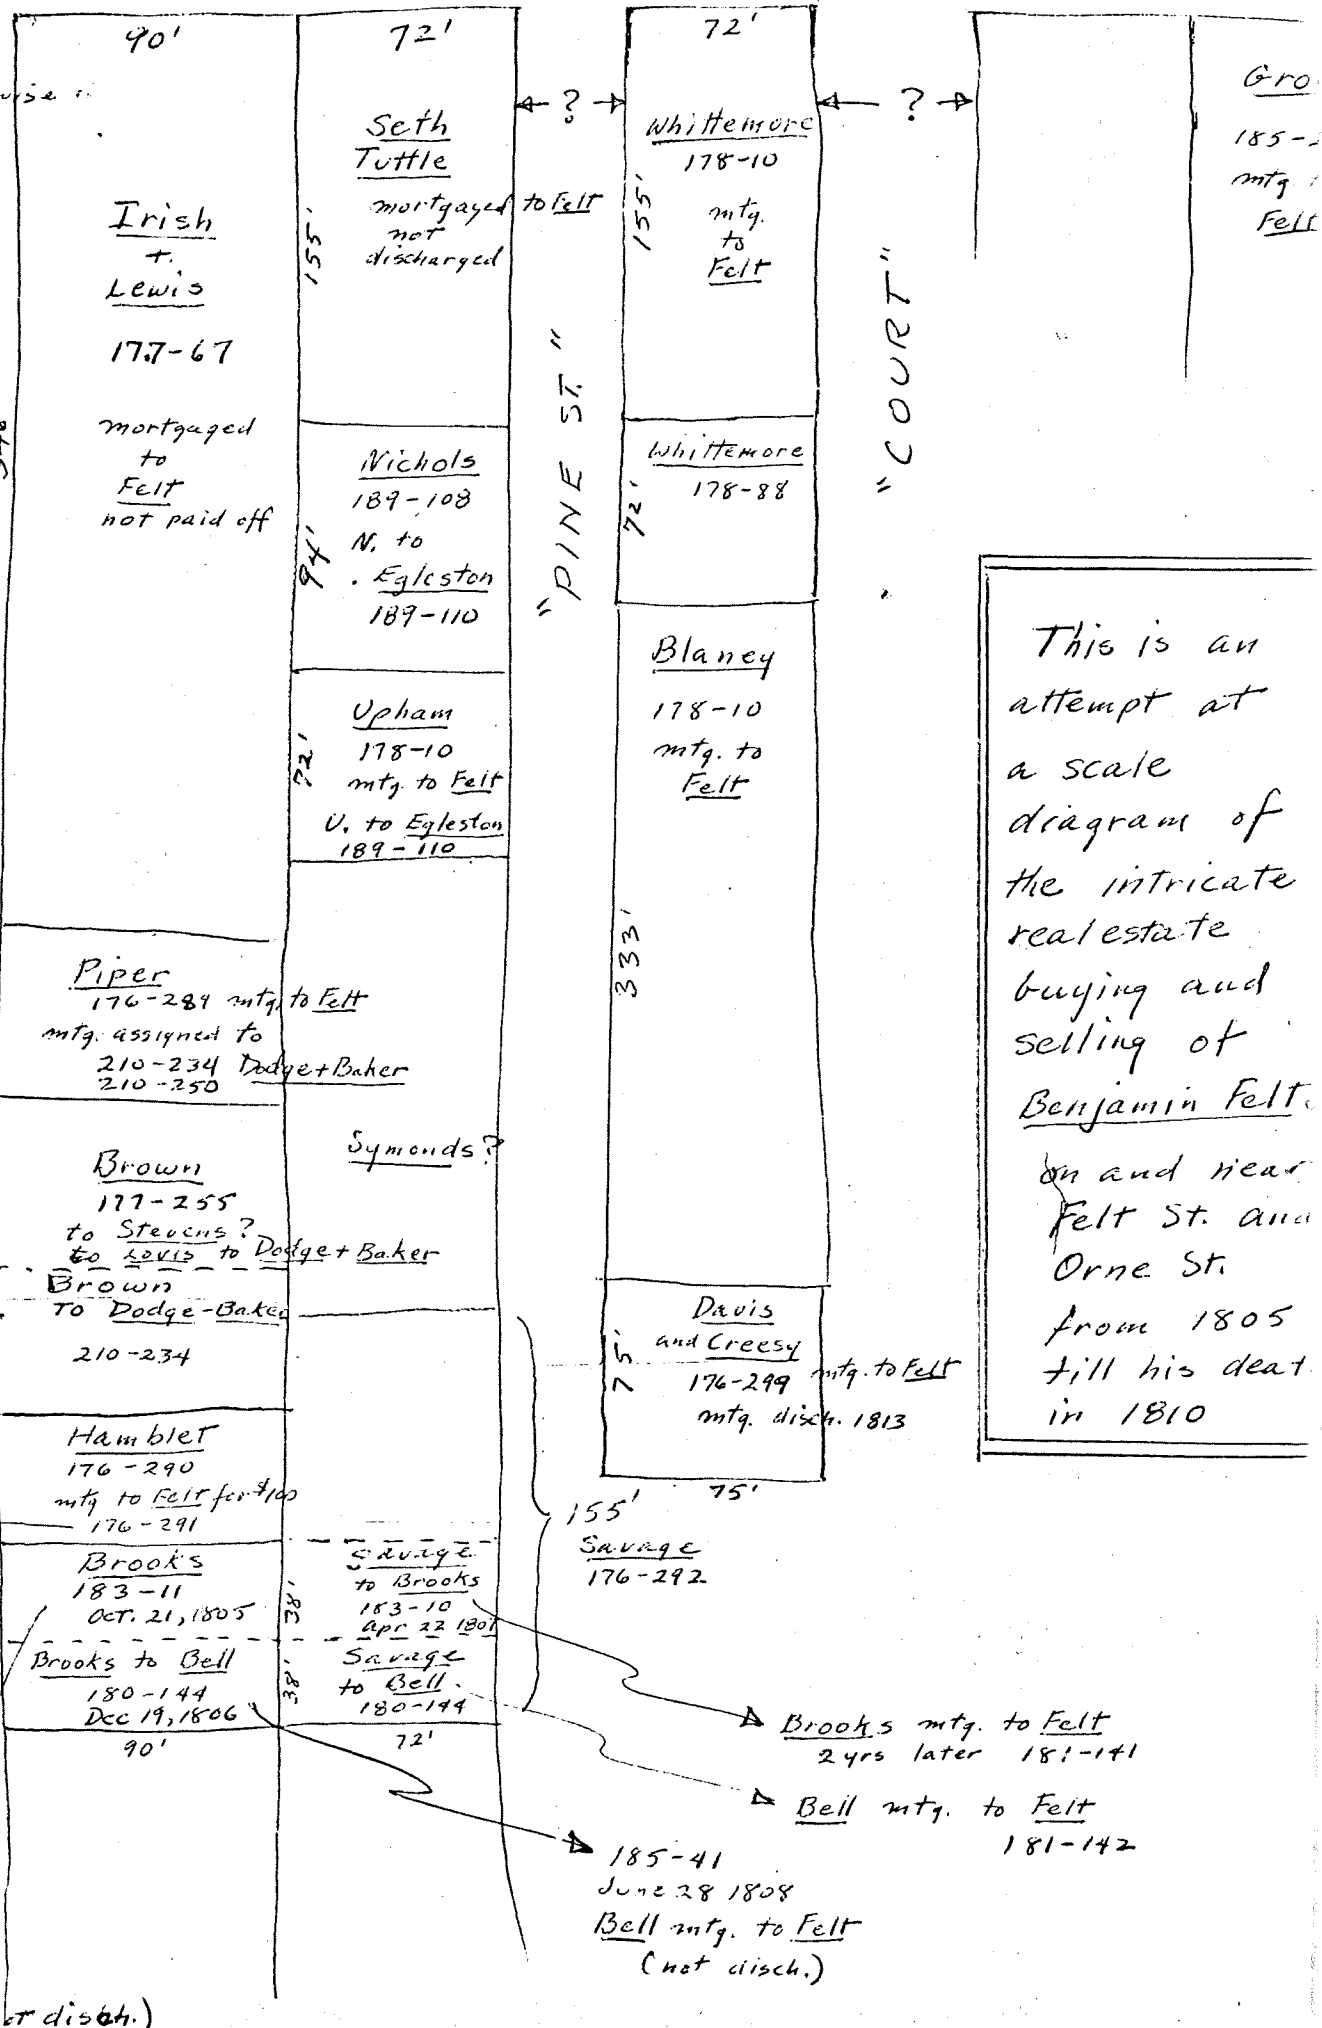 90'
Irish
+
Lewis
177-67
mortgaged
to
Felt
not paid off
Piper
176-289 mtg. to Felt
mtg. assigned to
210-234 Dodge+Baker
210-250
Brown
177-255
to Stevens?
to Lovis to Dodge + Baker
Brown
To Dodge-Baker
210-234
Hamblet
176-290
mtg to Felt for $100
176-291
Brooks
183-11
Oct. 21, 1805
Brooks to Bell
180-144
Dec 19, 1806
90'
72'
Seth
Tuttle
155'
mortgaged to Felt
not
discharged
Nichols
189-108
94'
N. to
Egleston
189-110
Upham
178-10
72'
mtg. to Felt
U. to Egleston
189-110
Symonds?
Savage
to Brooks
38'
183-10
Apr 22 1807
Savage
38'
to Bell.
180-144
72'
155'
Savage
176-292
?
"PINE ST."
72'
Whittemore
178-10
155'
mtg.
to
Felt
Whittemore
178-88
72'
Blaney
178-10
mtg. to
Felt
333'
Davis
and Creesy
75'
176-299 mtg. to Felt
mtg. disch. 1813
75'
?
"COURT"
185-
mtg
Felt
This is an
attempt at
a scale
diagram of
the intricate
real estate
buying and
selling of
Benjamin Felt.
on and near
Felt St. and
Orne St.
from 1805
till his deat
in 1810
Brooks mtg. to Felt
2 yrs later 181-141
Bell mtg. to Felt
181-142
185-41
June 28 1808
Bell mtg. to Felt
(not disch.)
disch.)